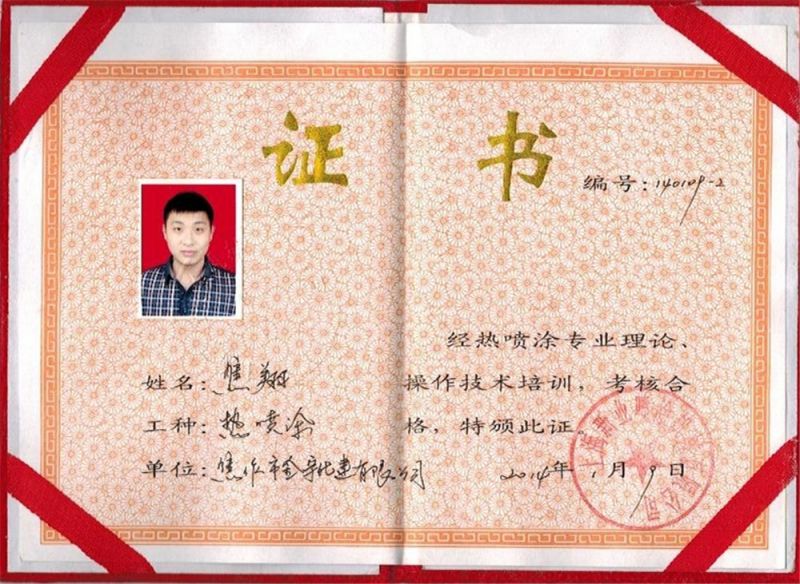 证书
编号:140109-2
姓名:焦翔
工种:热喷涂
单位:焦作市金 建有限公司
经热喷涂专业理论、
操作技术培训,考核合
格,特颁此证。
2014年1月9日